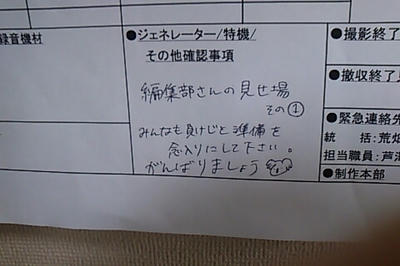 録音機材
●ジェネレーター/特機/
その他確認事項
編集部さんの見せ場
その①
みんなも負けじと準備を
念入りにして下さい。
がんばりましょう
●撮影終了
●撤収終了
●緊急連絡先
統　括:荒畑
担当職員:芦
●制作本部